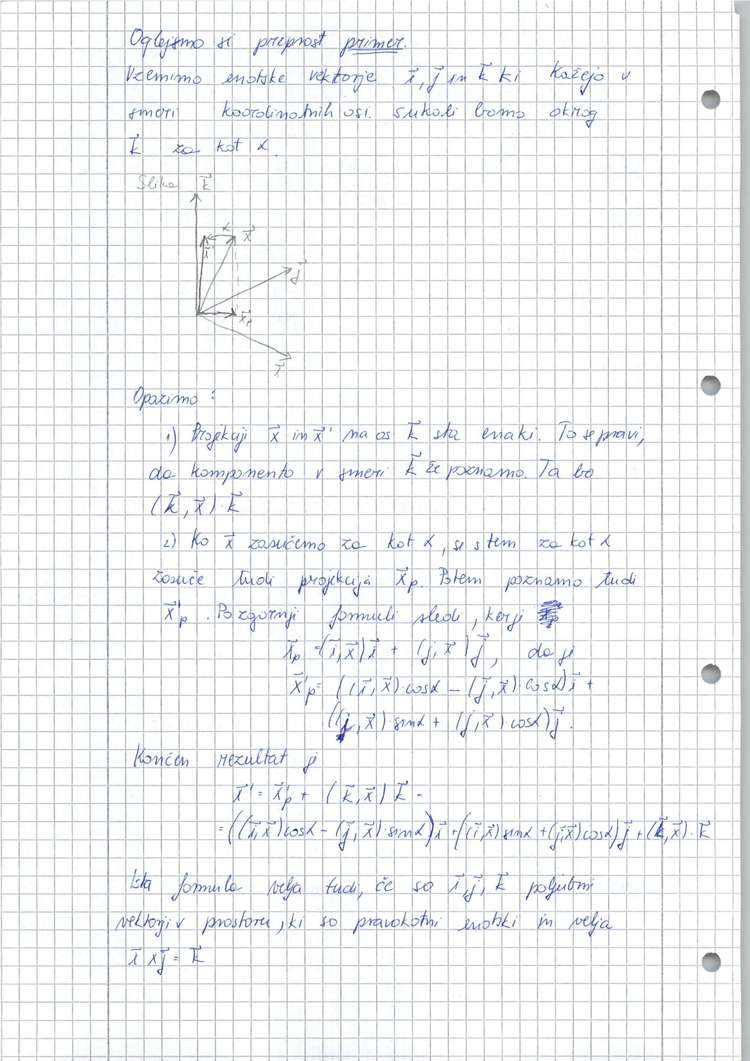 Oglejmo si preprost primer.
Vzemimo enotske vektorje i⃗, j⃗ in k⃗ ki kažejo v
smeri koordinatnih osi. Sukali bomo okrog
k⃗ za kot α.
Slika k⃗
α x⃗
x⃗'
j⃗
x⃗p
i⃗
Opazimo:
1) Projekciji x⃗ in x⃗' na os k⃗ sta enaki. To se pravi,
da komponento v smeri k⃗ že poznamo. Ta bo
(k⃗, x⃗)·k⃗
2) Ko x⃗ zasučemo za kot α, se s tem za kot α
zasuče tudi projekcija x⃗p. Potem poznamo tudi
x⃗'p. Po zgornji formuli sledi, ker je
x⃗p = (i⃗, x⃗)i⃗ + (j, x⃗)j⃗, da je
x⃗'p = ((i⃗, x⃗)·cosα − (j⃗, x⃗)·cosα)i⃗ +
((j, x⃗)·sinα + (j, x⃗)·cosα)j⃗.
Končen rezultat je
x⃗' = x⃗'p + (k⃗, x⃗)k⃗ =
= ((i⃗, x⃗)cosα − (j⃗, x⃗)·sinα)i⃗ + ((i⃗, x⃗)sinα + (j, x⃗)cosα)j⃗ + (k⃗, x⃗)·k⃗
Ista formula velja tudi, če so i⃗, j⃗, k⃗ poljubni
vektorji v prostoru, ki so pravokotni enotski in velja
i⃗ × j⃗ = k⃗